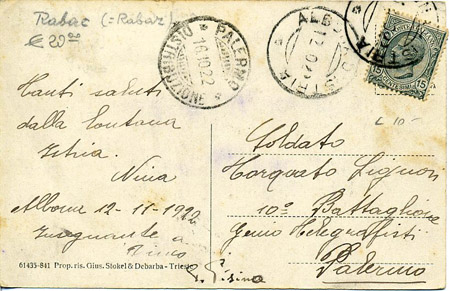 Rabac (= Rabaz)
€ 20.00
PALERMO
16.10.22
ISTRIA
ISTRIA
15
£ 10-
Tanti saluti
dalla lontana
Istria.
Nina
Albona 12-11-1922
Insegnante a
Soldato
Torquato Liguori
10º Battaglione
Genio Telegrafisti
Palermo
61435-841 Prop. ris. Gius. Stokel & Debarba - Trieste